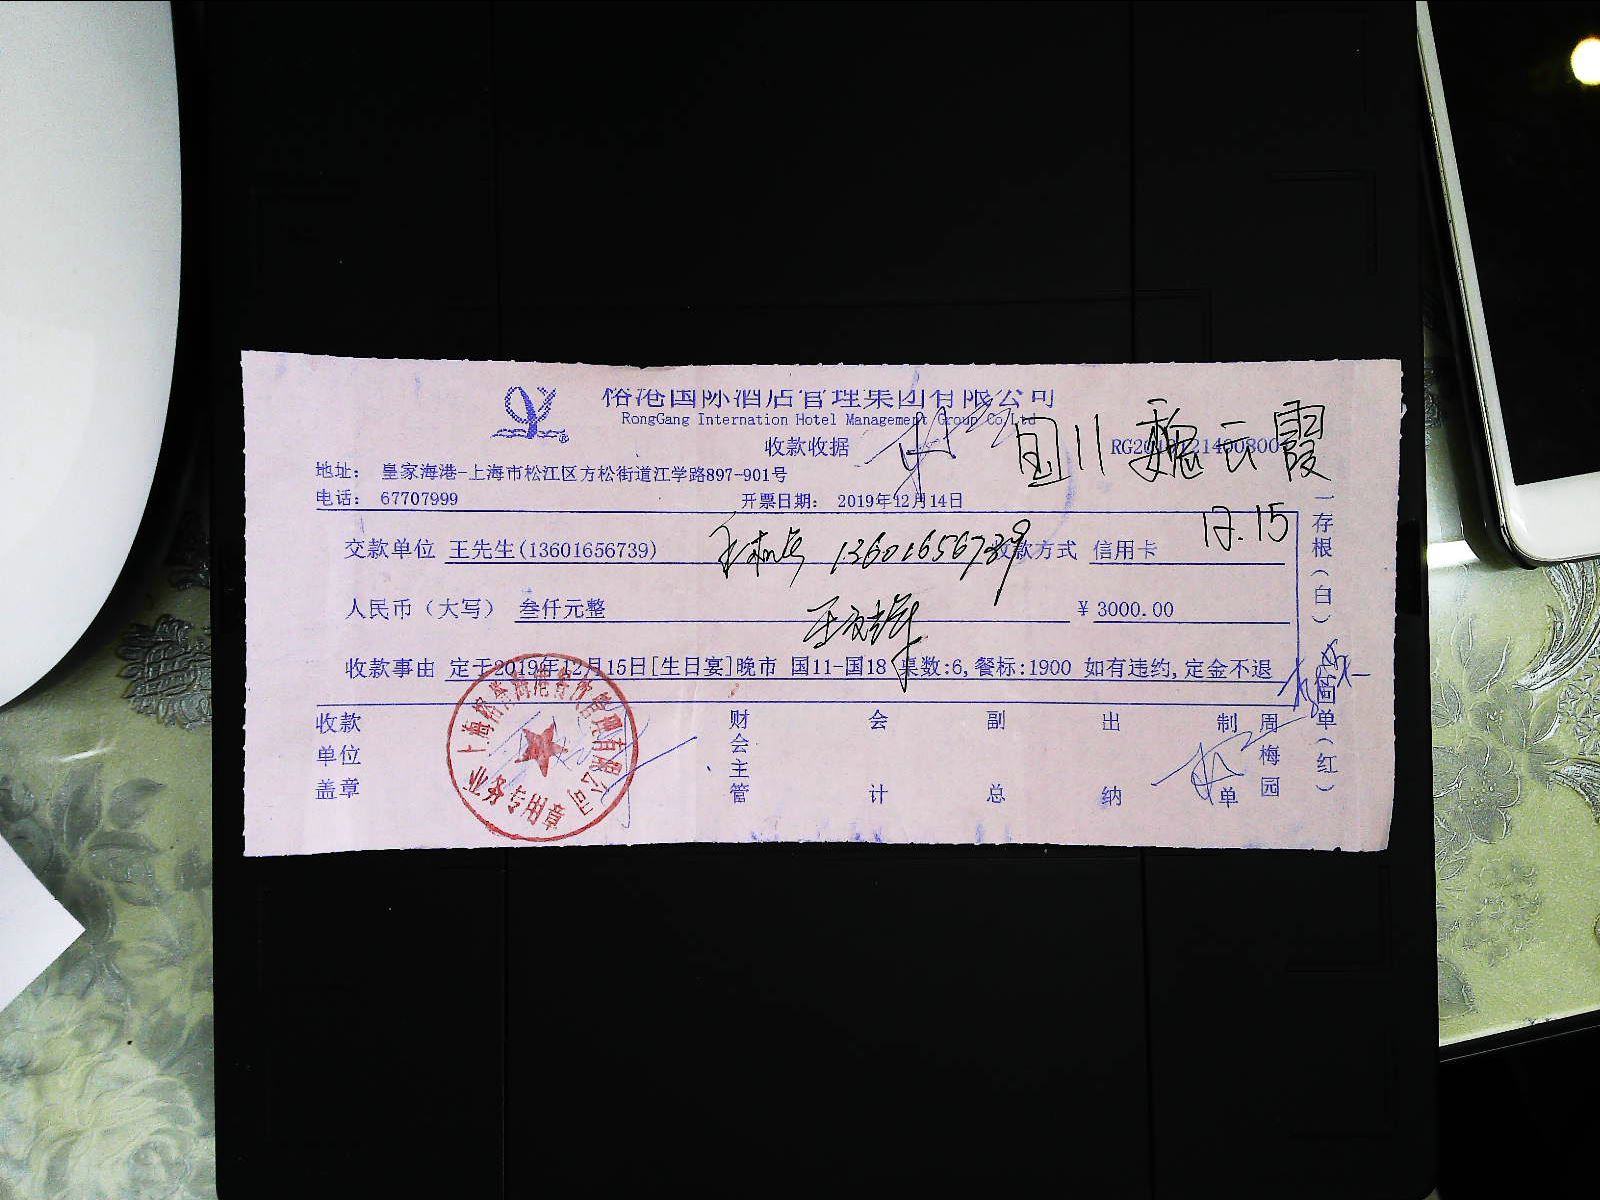 裕港国际酒店管理集团有限公司
RongGang Internation Hotel Management Group Co.Ltd
收款收据
国11 魏云霞
地址： 皇家海港-上海市松江区方松街道江学路897-901号
电话： 67707999 开票日期： 2019年12月14日
12.15
交款单位 王先生(13601656739) 13601656739 收款方式 信用卡
人民币（大写） 叁仟元整 ¥ 3000.00
收款事由 定于2019年12月15日[生日宴]晚市 国11-国18 桌数:6,餐标:1900 如有违约,定金不退
收款单位盖章 财会主管 会计 副总 出纳 制单 周梅园
一存根(白)
回单(红)
上海裕港海港餐饮管理有限公司
业务专用章